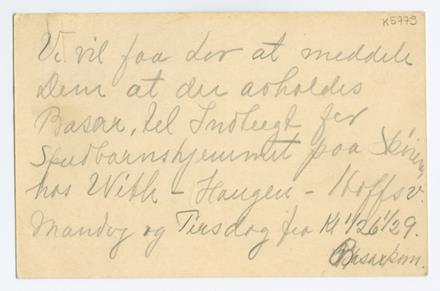 K5779
Vi vil faa Lov at meddele
Dem at der avholdes
Basar, til Indtægt for
Spædbarnshjemmet paa Skøien
hos With - Haugen - Hoffsv.
Mandag og Tirsdag fra Kl
Basarkom.